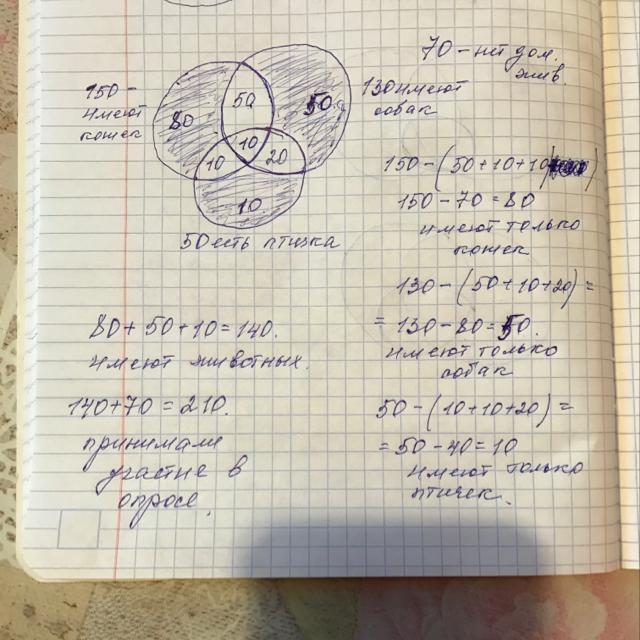 70 – нет дом.
жив.
150 –
имеют
кошек
130 имеют
собак
80
50
50
10
10
20
10
50 есть птичка
150 – (50 + 10 + 10)
150 – 70 = 80
имеют только
кошек
130 – (50 + 10 + 20) =
= 130 – 80 = 50.
имеют только
собак
50 – (10 + 10 + 20) =
= 50 – 40 = 10
имеют только
птичек.
80 + 50 + 10 = 140.
имеют животных.
140 + 70 = 210.
принимали
участие в
опросе.